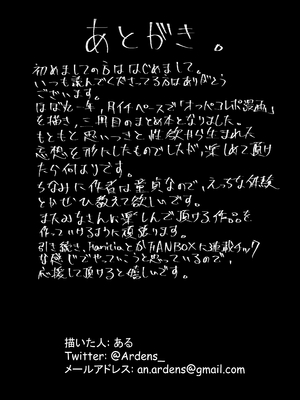 あとがき。
初めましての方ははじめまして。
いつも読んでくださってる方はありがとう
ございます。
ほぼ丸一年、月イチペースで「オッパコレポ漫画」
を描き、三冊目のまとめ本となりました。
もともと思いつきと性欲から生まれた
妄想を形にしたものでしたが、楽しめて頂け
たら何よりです。
ちなみに作者は童貞なので、えっちな体験
とかぜひ教えて欲しいです。
またみなさんに楽しんで頂ける作品を
作っていけるように頑張ります。
引き続き、FANBOXに連載チック
な感じでやっていこうと思っているので、
応援して頂けると嬉しいです。
描いた人: ある
Twitter: @Ardens_
メールアドレス: an.ardens@gmail.com